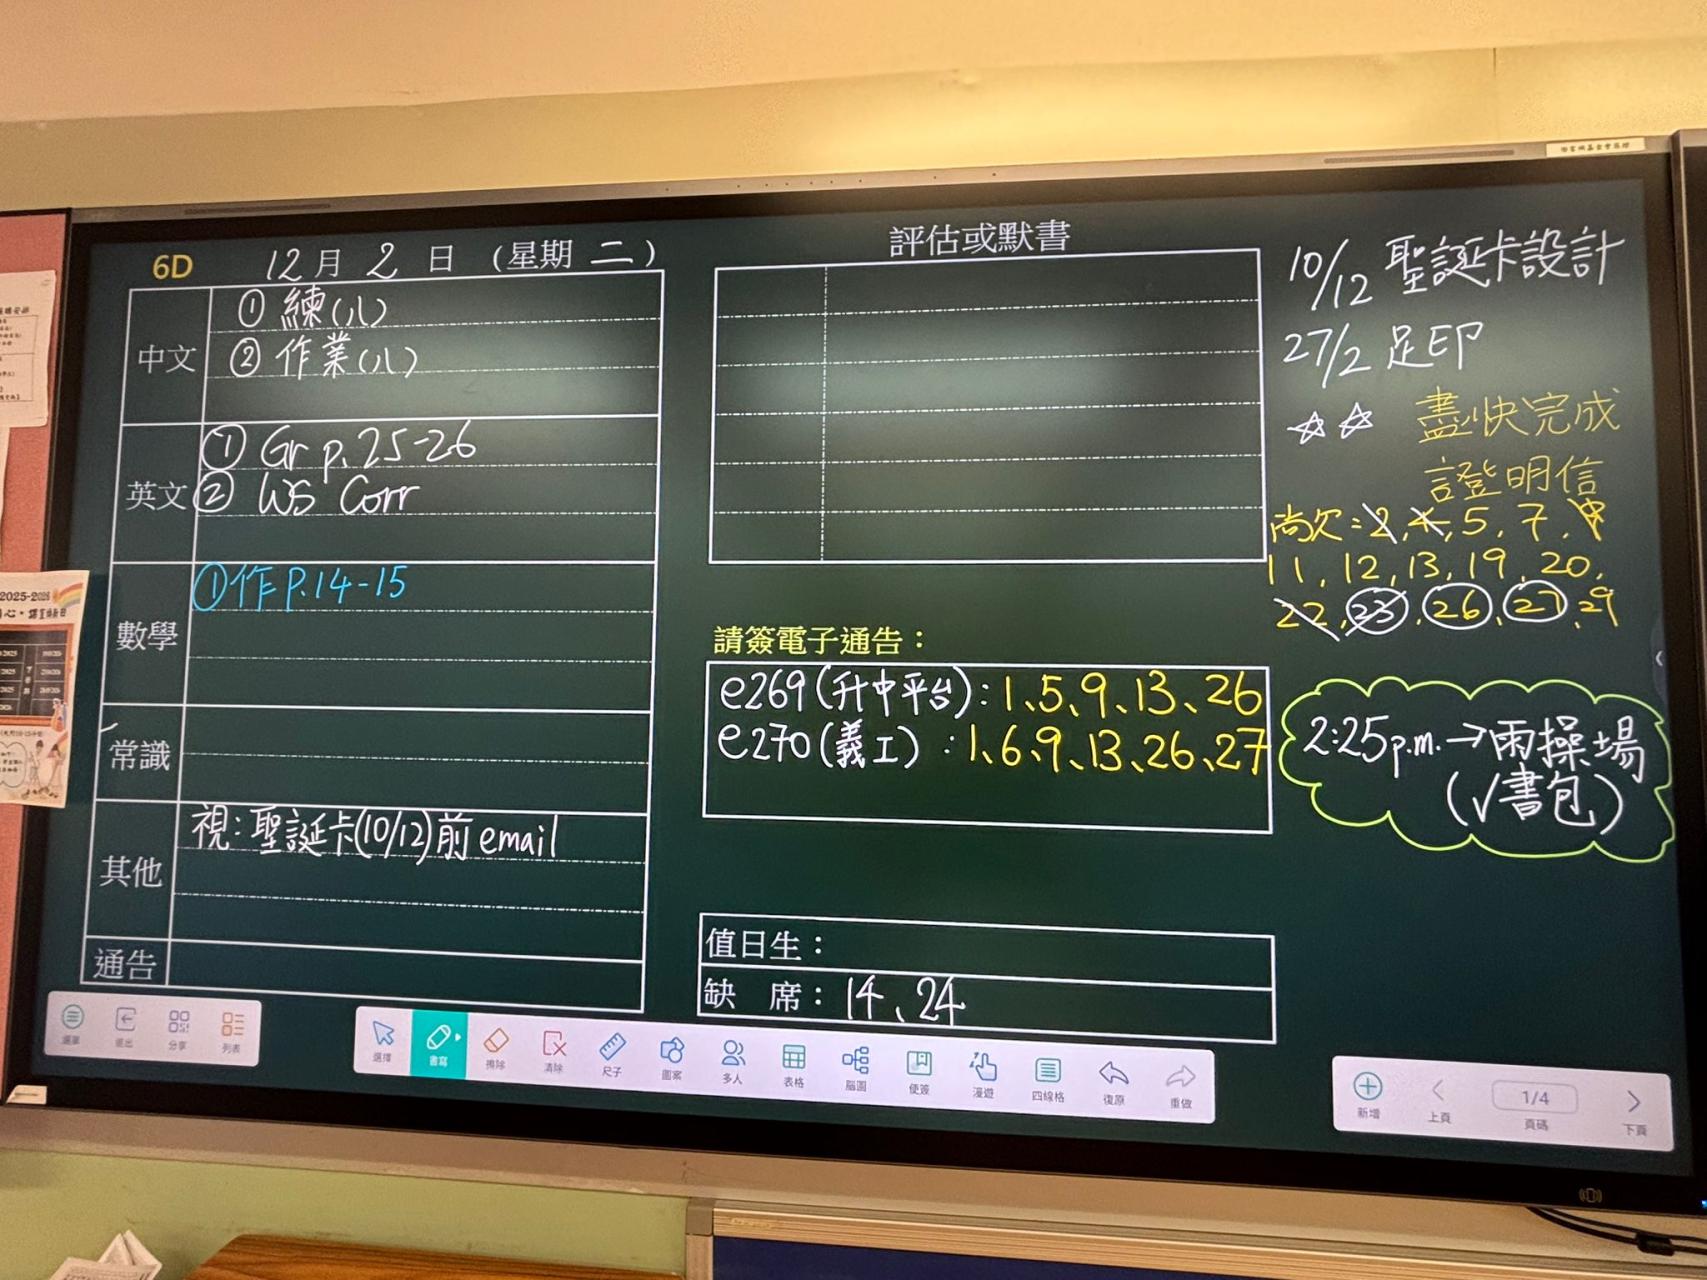 6D 12月 2日 (星期 二)
中文
① 練(八)
② 作業(八)
英文
① Gr p.25-26
② WS Corr
數學
① 作 P.14-15
常識
其他
視：聖誕卡(10/12)前 email
通告
評估或默書
請簽電子通告：
e269 (升中平台)：1、5、9、13、26
e270 (義工)：1、6、9、13、26、27
值日生：
缺 席：14、24
10/12 聖誕卡設計
27/2 足印
☆☆ 盡快完成
證明信
尚欠：2, 4, 5, 7, 9
11, 12, 13, 19, 20,
22, 23, 26, 27, 29
2:25p.m.→雨操場
(√書包)
選單 退出 分享 列表
選擇 書寫 擦除 清除 尺子 圖案 多人 表格 腦圖 便簽 漫遊 四線格 復原 重做
新增 上頁 1/4 頁碼 下頁
2025-2026